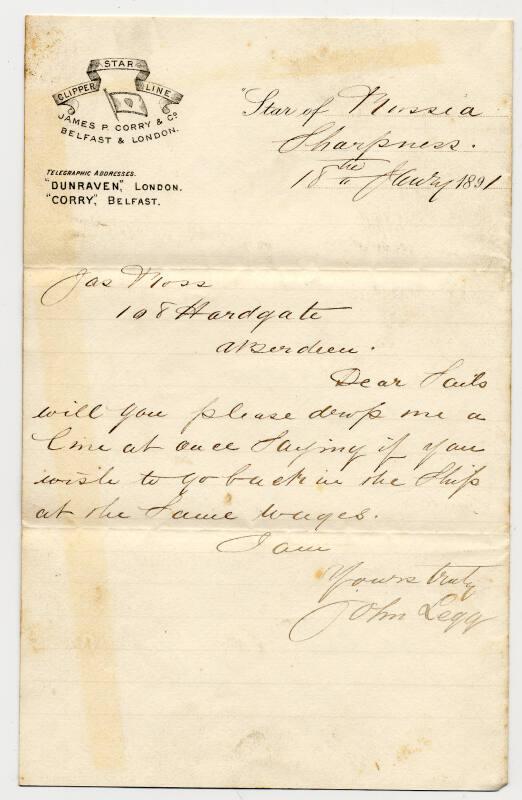 STAR
CLIPPER LINE
JAMES P. CORRY & Co
BELFAST & LONDON.
TELEGRAPHIC ADDRESSES.
"DUNRAVEN", LONDON.
"CORRY", BELFAST.
"Star of Russia
Sharpness.
18th Janry 1891
Jas Ross
108 Hardgate
Aberdeen.
Dear Sails
will you please drop me a
line at once Saying if you
wish to go back in the Ship
at the Same wages.
I am
Yours truly
John Legg